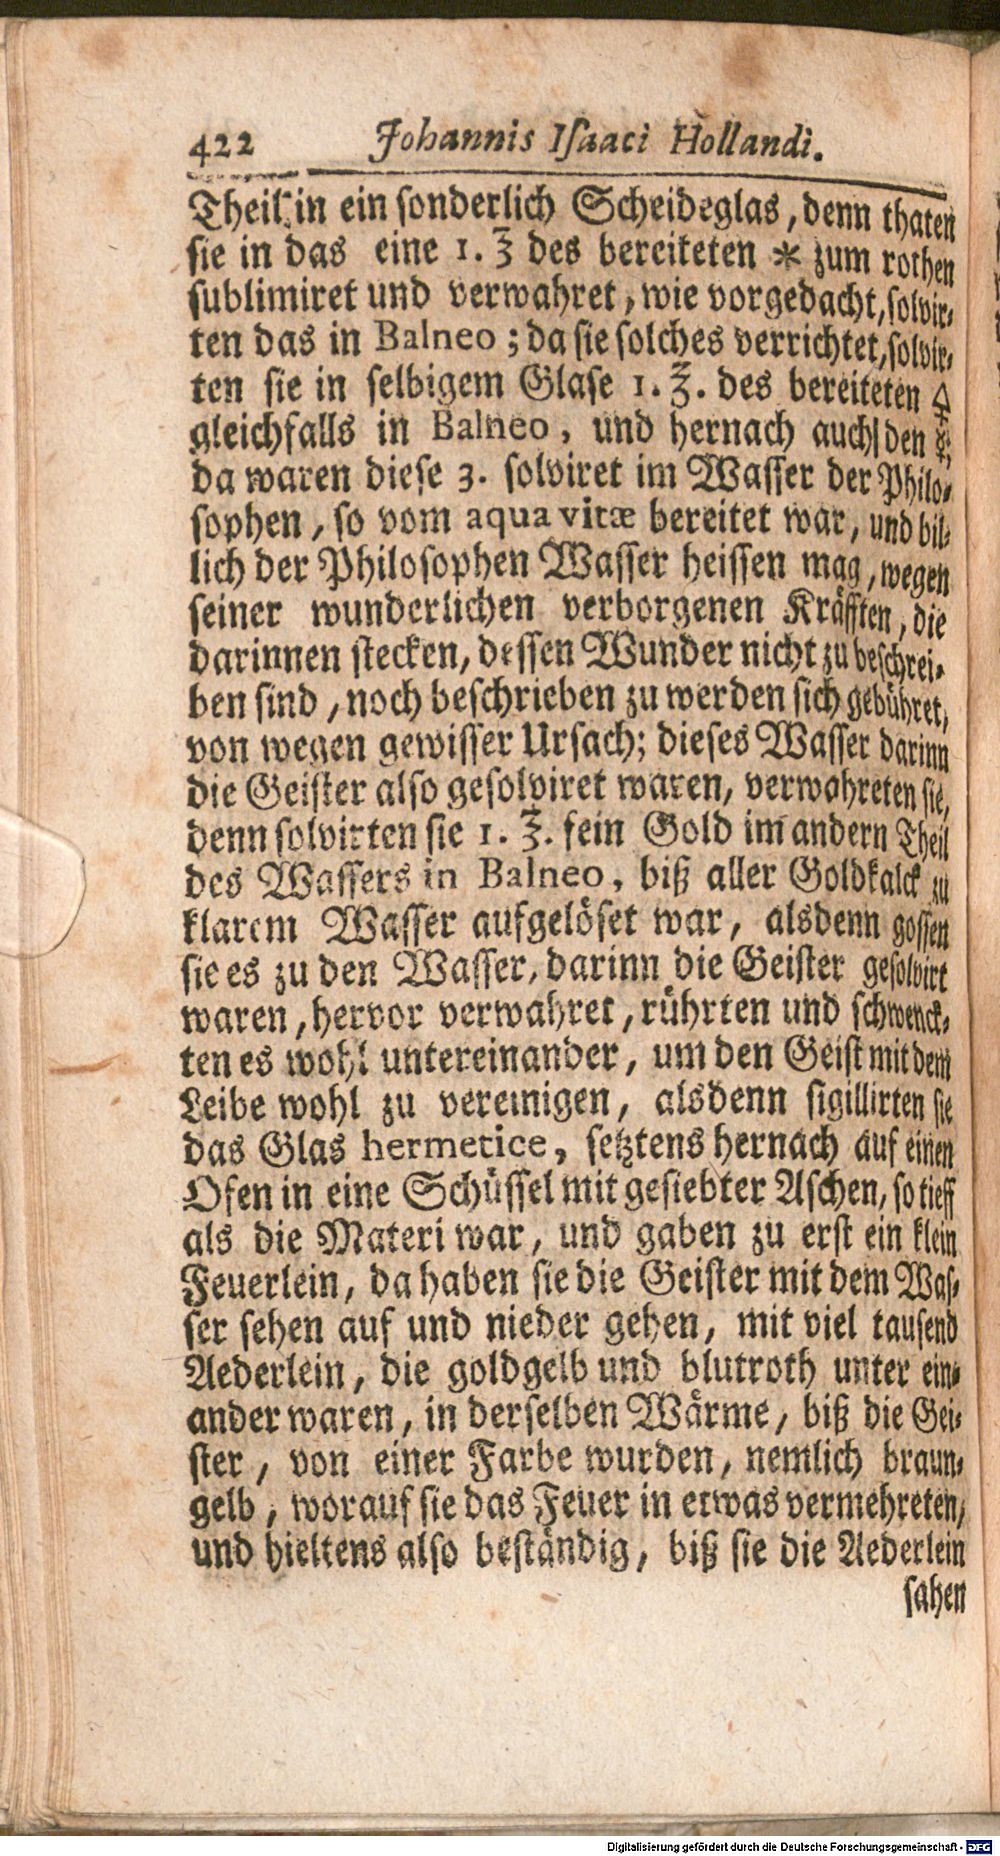 422 Johannis Isaaci Hollandi.
Theil in ein sonderlich Scheideglas, denn thaten
sie in das eine 1. ℥ des bereiteten ✱ zum rothen
sublimiret und verwahret, wie vorgedacht, solvir-
ten das in Balneo; da sie solches verrichtet, solvir-
ten sie in selbigem Glase 1. ℥. des bereiteten 🜍
gleichfalls in Balneo, und hernach auch den ☿,
da waren diese 3. solviret im Wasser der Philo-
sophen, so vom aqua vitæ bereitet war, und bil-
lich der Philosophen Wasser heissen mag, wegen
seiner wunderlichen verborgenen Kräfften, die
darinnen stecken, dessen Wunder nicht zu beschrei-
ben sind, noch beschrieben zu werden sich gebühret,
von wegen gewisser Ursach; dieses Wasser darinn
die Geister also gesolviret waren, verwahreten sie,
denn solvirten sie 1. ℥. fein Gold im andern Theil
des Wassers in Balneo, biß aller Goldkalck zu
klarem Wasser aufgelöset war, alsdenn gossen
sie es zu den Wasser, darinn die Geister gesolvirt
waren, hervor verwahret, rührten und schwenck-
ten es wohl untereinander, um den Geist mit dem
Leibe wohl zu vereinigen, alsdenn sigillirten sie
das Glas hermetice, setztens hernach auf einen
Ofen in eine Schüssel mit gesiebter Aschen, so tieff
als die Materi war, und gaben zu erst ein klein
Feuerlein, da haben sie die Geister mit dem Was-
ser sehen auf und nieder gehen, mit viel tausend
Aederlein, die goldgelb und blutroth unter ein-
ander waren, in derselben Wärme, biß die Gei-
ster, von einer Farbe wurden, nemlich braun-
gelb, worauf sie das Feuer in etwas vermehreten,
und hieltens also beständig, biß sie die Aederlein
sahen
Digitalisierung gefördert durch die Deutsche Forschungsgemeinschaft - DFG